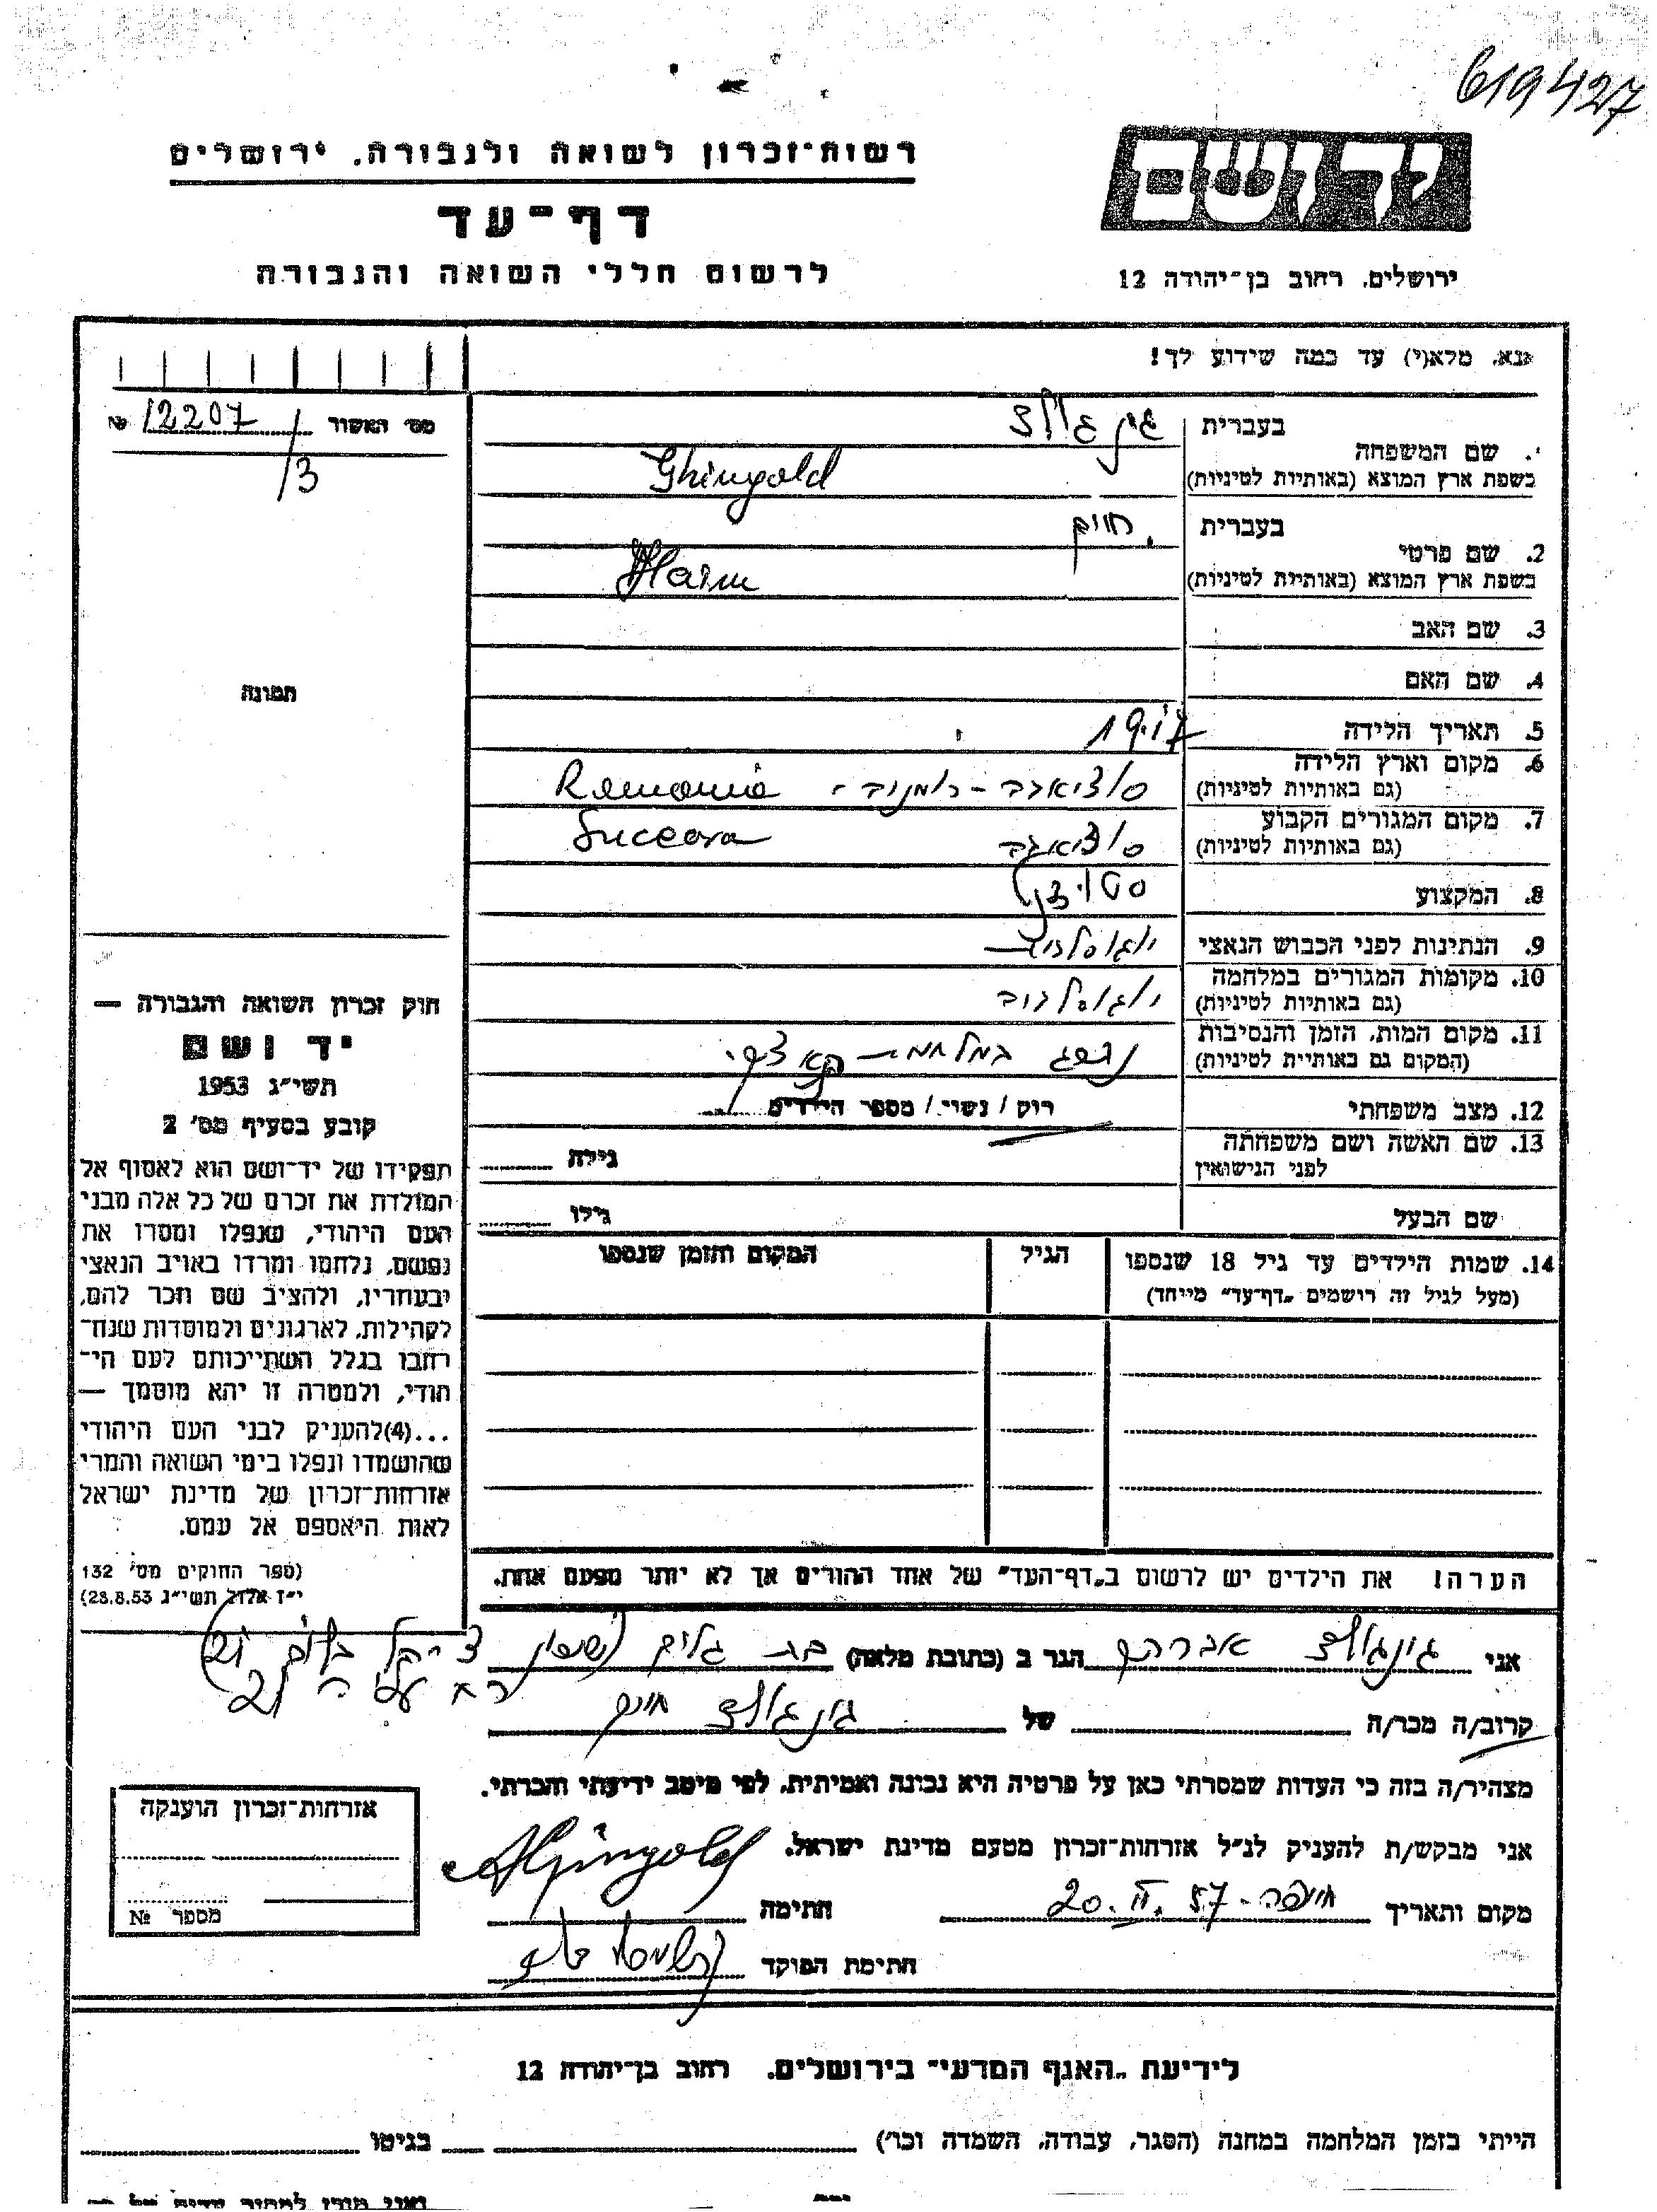 619427
רשות־זכרון לשואה ולגבורה. ירושלים
יד ושם
דף־עד
לרשום חללי השואה והגבורה
ירושלים. רחוב בן־יהודה 12
נא. מלא(י) עד כמה שידוע לך!
מס' האשור 12207 №
/3
1. שם המשפחה
בעברית גינגולד
בשפת ארץ המוצא (באותיות לטיניות) Ghingold
2. שם פרטי
בעברית חיים
בשפת ארץ המוצא (באותיות לטיניות) Haim
3. שם האב
4. שם האם
תמונה
5. תאריך הלידה 1917
6. מקום וארץ הלידה
(גם באותיות לטיניות) סוציאבה - רומניה - Romania
7. מקום המגורים הקבוע
(גם באותיות לטיניות) סוציאבה Suceava
8. המקצוע סטודנט
9. הנתינות לפני הכבוש הנאצי יוגוסלבית
10. מקומות המגורים במלחמה
(גם באותיות לטיניות) יוגוסלביה
11. מקום המות, הזמן והנסיבות
(המקום גם באותיית לטיניות) נהרג במלחמת הנאצים
12. מצב משפחתי רוק / נשוי / מספר הילדים
13. שם האשה ושם משפחתה
לפני הנישואין
גילה
שם הבעל
גילו
14. שמות הילדים עד גיל 18 שנספו
(מעל לגיל זה רושמים „דף־עד" מייחד)
הגיל
המקום והזמן שנספו
חוק זכרון השואה והגבורה —
יד ושם
תשי"ג 1953
קובע בסעיף מס' 2
תפקידו של יד־ושם הוא לאסוף אל
המולדת את זכרם של כל אלה מבני
העם היהודי, שנפלו ומסרו את
נפשם, נלחמו ומרדו באויב הנאצי
ובעוזריו, ולהציב שם וזכר להם,
לקהילות, לארגונים ולמוסדות שנח־
רבו בגלל השתייכותם לעם הי־
הודי, ולמטרה זו יהא מוסמך —
...(4)להעניק לבני העם היהודי
שהושמדו ונפלו בימי השואה והמרי
אזרחות־זכרון של מדינת ישראל
לאות היאספם אל עמם.
(ספר החוקים מס' 132
י"ז אלול תשי"ג 28.8.53)
הערה! את הילדים יש לרשום ב„דף־העד" של אחד ההורים אך לא יותר מפעם אחת.
אני גינגולד אברהם הגר ב (כתובת מלאה) בת גלים
קרוב/ה מכר/ה של גינגולד חיים
מצהיר/ה בזה כי העדות שמסרתי כאן על פרטיה היא נכונה ואמיתית, לפי מיטב ידיעתי והכרתי.
אני מבקש/ת להעניק לנ"ל אזרחות־זכרון מטעם מדינת ישראל.
מקום ותאריך חיפה - 20.II.57
חתימה AGhingold
חתימת הפוקד
אזרחות־זכרון הוענקה
מספר №
לידיעת „האגף המדעי" בירושלים. רחוב בן־יהודה 12
הייתי בזמן המלחמה במחנה (הסגר, עבודה, השמדה וכו') בגיטו